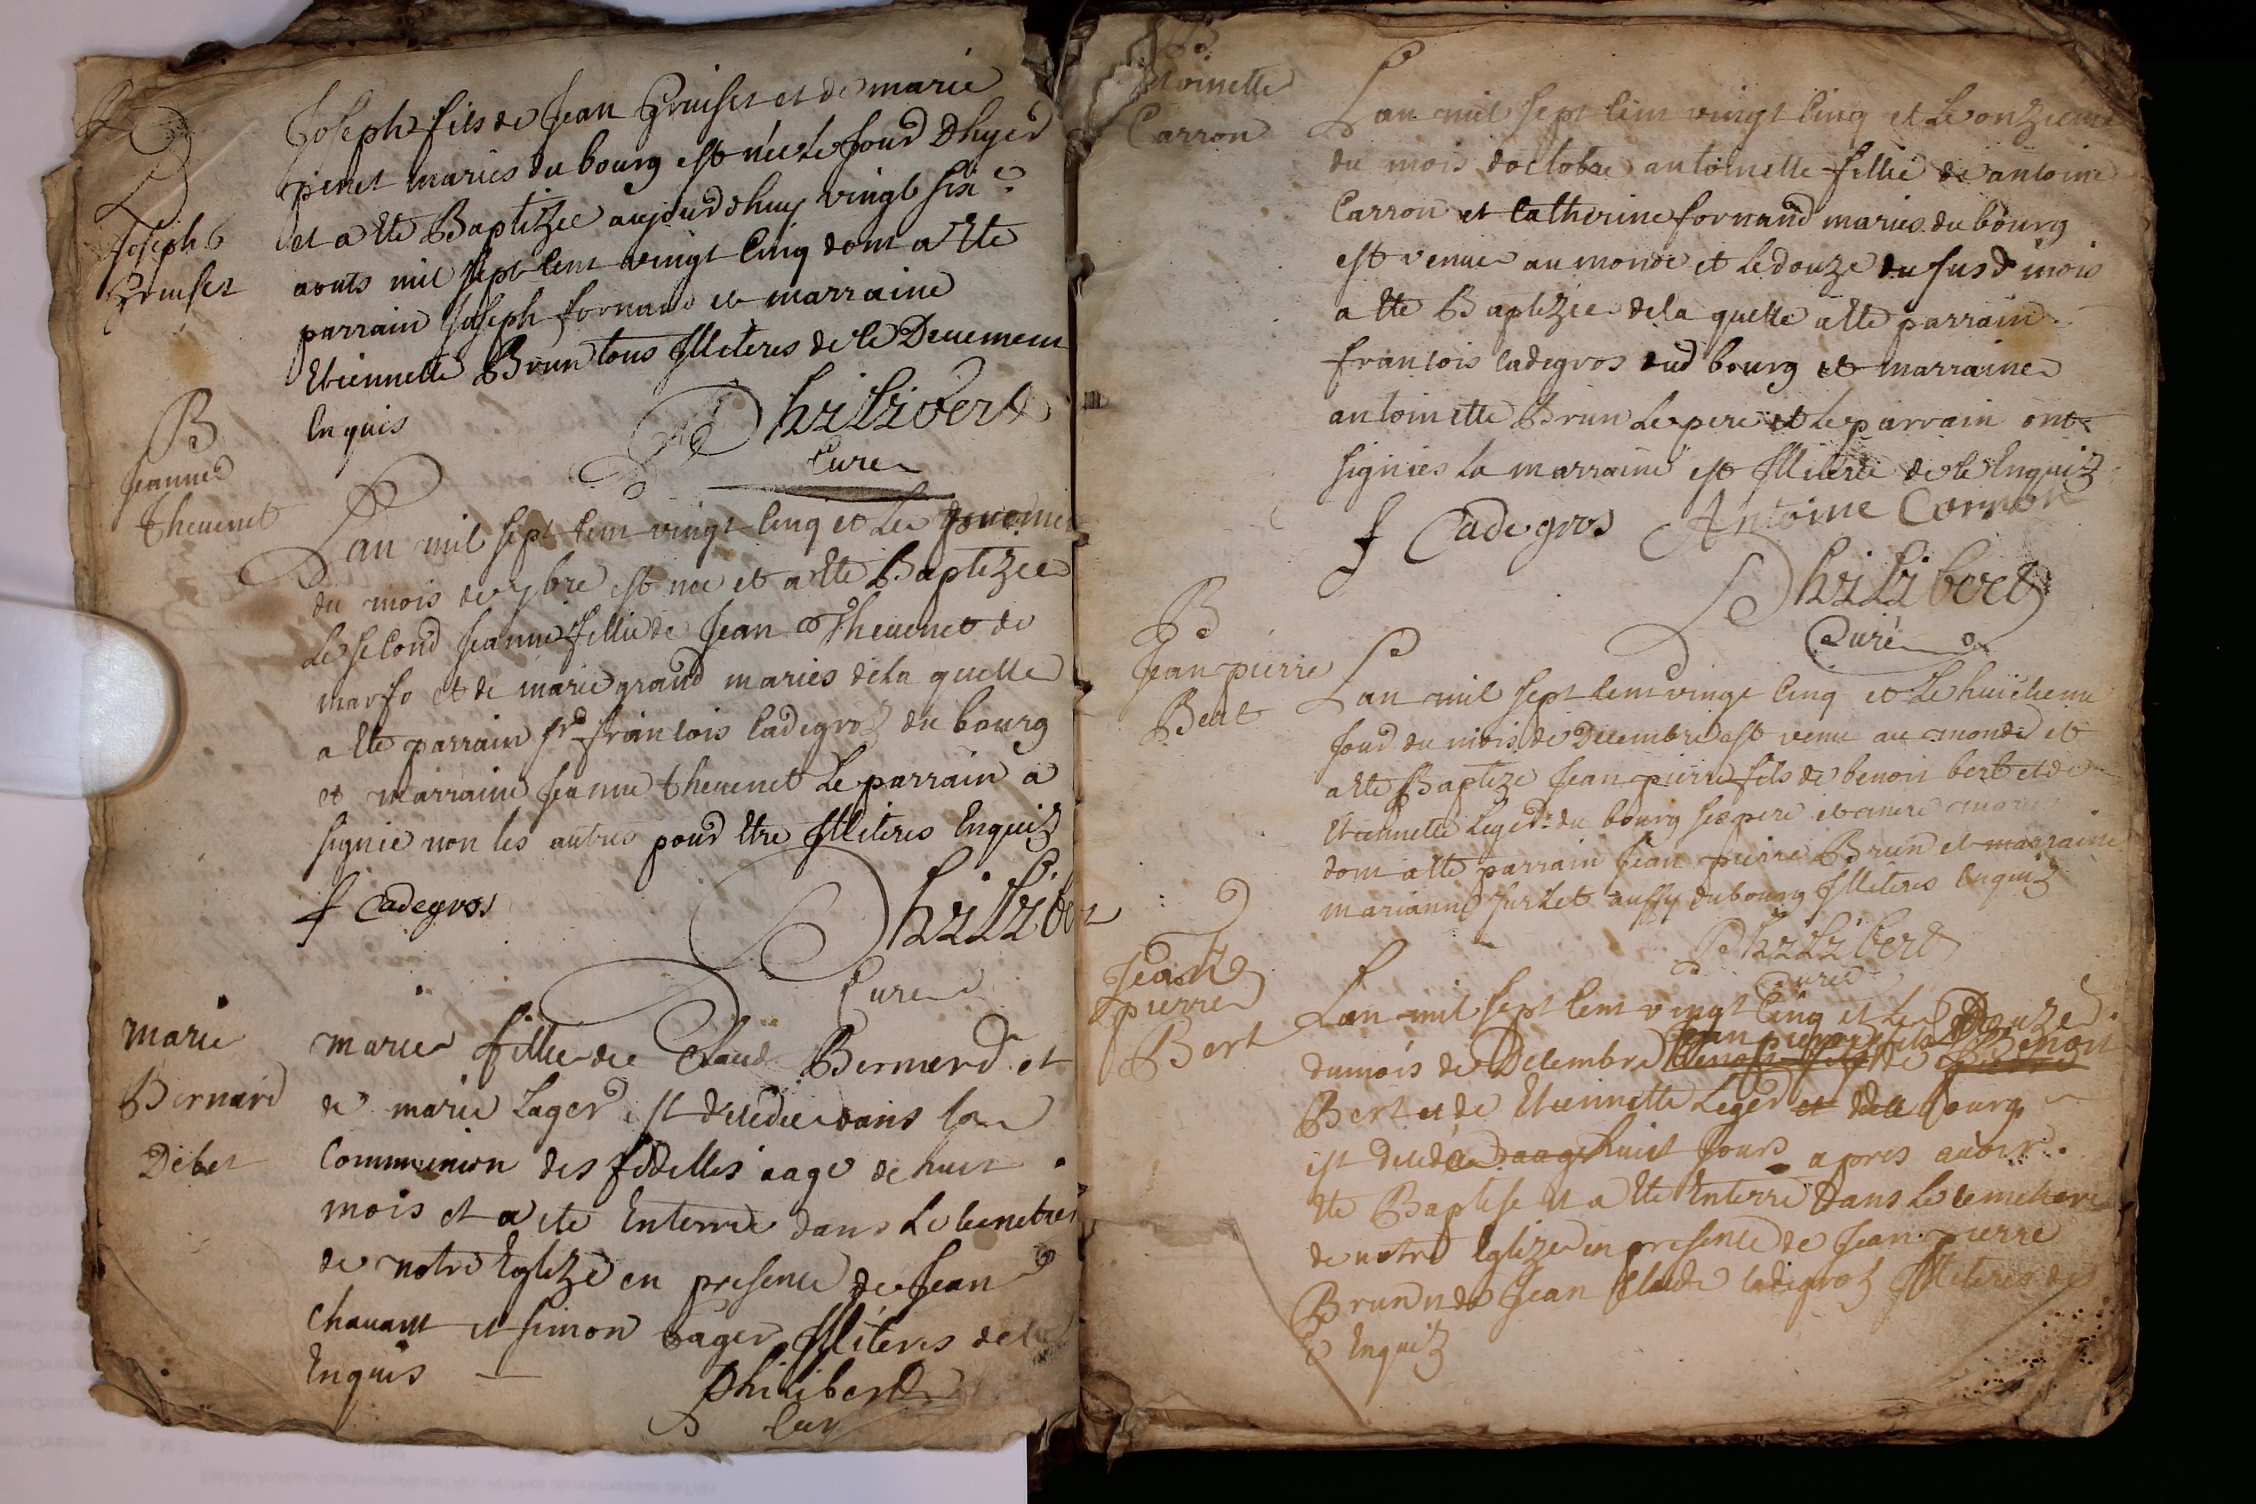 B
Joseph
Gruiset
Joseph fils de Jean Gruiset et de marie
penet mariés du bourg est née le jour Dhyer
et a ete Baptizee aujourdhuy vingt six e
aouts mil sept cent vingt cinq dont a ete
parrain Joseph fornand et marraine
Etiennette Brun tous Illiteres de ce Deuement
Enquis
Philibert
Cure
B
Jeanne
Thevenet
Lan mil sept cent vingt cinq et Le
du mois de 7bre est nee et a ete Baptizee
Le second Jeanne fillie de Jean Thevenet de
et de marie grand mariés de la quelle
a ete parrain sr francois Cadegroz du bourg
et marraine Jeanne thevenet Le parrain a
signie non les autres pour etre Illiteres Enquiz
f Cadegros
Philibert
Cure
marie
Bernard
marie fillie de Claud Bernard et
de marie Lager est decedee dans la
Communion des fidelles aage de huit
mois et a ete Enterrée dans Le
de notre Eglize en presence de Jean
Chavant et simon Lager Illiteres de ce
Enquis
Philibert
Cur
B
toinette
Carron
Lan mil sept cent vingt cinq et Le onzieme
du mois doctobre antoinette fillie de antoine
Carron et Catherine fornand mariés du bourg
est venue au monde et Le douze du susd mois
a ete Baptizée de la quelle a ete parrain
francois Cadegros dud bourg et marraine
antoinette Brun Le pere et Le parrain ont
signies la marraine est Illiterée de ce Enquiz
f Cadegros Antoine Carron
Philibert
Curé
B
Jean pierre
Bert
Lan mil sept cent vingt cinq et Le huitieme
jour du mois de Decembre est venu au monde et
a ete Baptizé Jean pierre fils de benoit bert et de
Etiennette Leger du bourg ses pere et mere
dont a ete parrain Jean pierre Brun et marraine
marianne aussy du bourg Illiteres Enquiz
Philibert
Curé
Jean
pierre
Bert
Lan mil sept cent vingt cinq et Le Douze
Jean pierre fils Benoit
du mois de Decembre de
Bert et de Etiennette Leger et du bourg
est decede aage huit Jours apres avoir
ete Baptise et a ete Enterré Dans Le
de notre Eglize en presence de Jean pierre
Brun Jean Claude Cadegroz Illiteres de
ce Enquiz